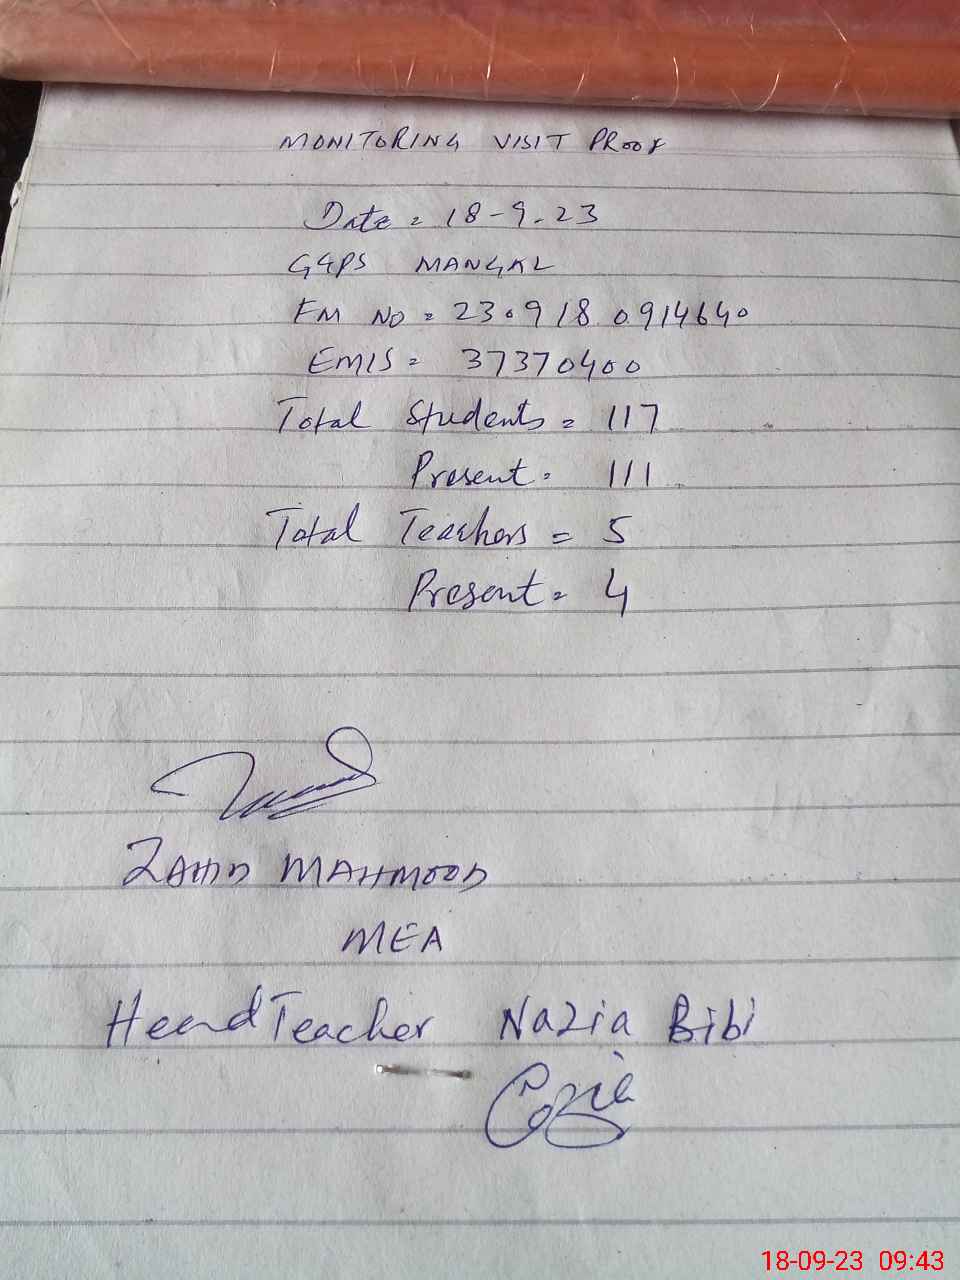 MONITORING VISIT PROOF
Date = 18-9-23
GGPS MANGAL
FM NO = 23.918.0914640
EMIS = 37370400
Total Students = 117
Present = 111
Total Teachers = 5
Present = 4
ZAHID MAHMOOD
MEA
Head Teacher Nazia Bibi
18-09-23 09:43